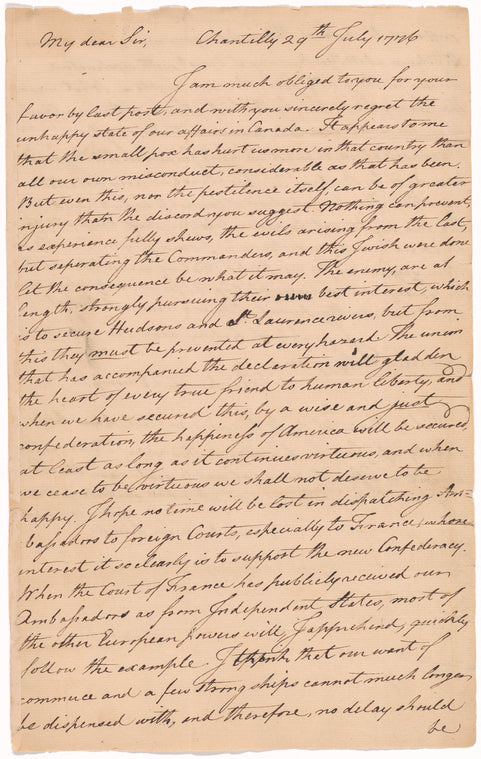 My dear Sir, Chantilly 29th July 1776
I am much obliged to you for your
favor by last post, and with you sincerely regret the
unhappy state of our affairs in Canada. It appears to me
that the small pox has hurt us more in that country than
all our own misconduct, considerable as that has been.
But even this, nor the pestilence itself can be of greater
injury than the discord you suggest. Nothing can prevent,
as experience fully shews, the evils arising from the last,
but seperating the Commanders, and this I wish were done
let the consequence be what it may. The enemy, are at
length, strongly pursuing their best interest, which
is to secure Hudsons and St. Laurence rivers, but from
this they must be prevented at every hazard. The union
that has accompanied the declaration will gladden
the heart of every true friend to human liberty, and
when we have secured this, by a wise and just
confederation, the happiness of America will be secured,
at least as long as it continues virtuous, and when
we cease to be virtuous we shall not deserve to be
happy. I hope no time will be lost in dispatching Am=
bassadors to foreign Courts, especially to France, whose
interest it so clearly is to support the new Confederacy.
When the Court of France has publicly received our
Ambassadors as from Independent States, most of
the other European powers will, I apprehend, quickly
follow the example. I think that our want of
commerce and a few strong ships cannot much longer
be dispensed with, and therefore, no delay should
be